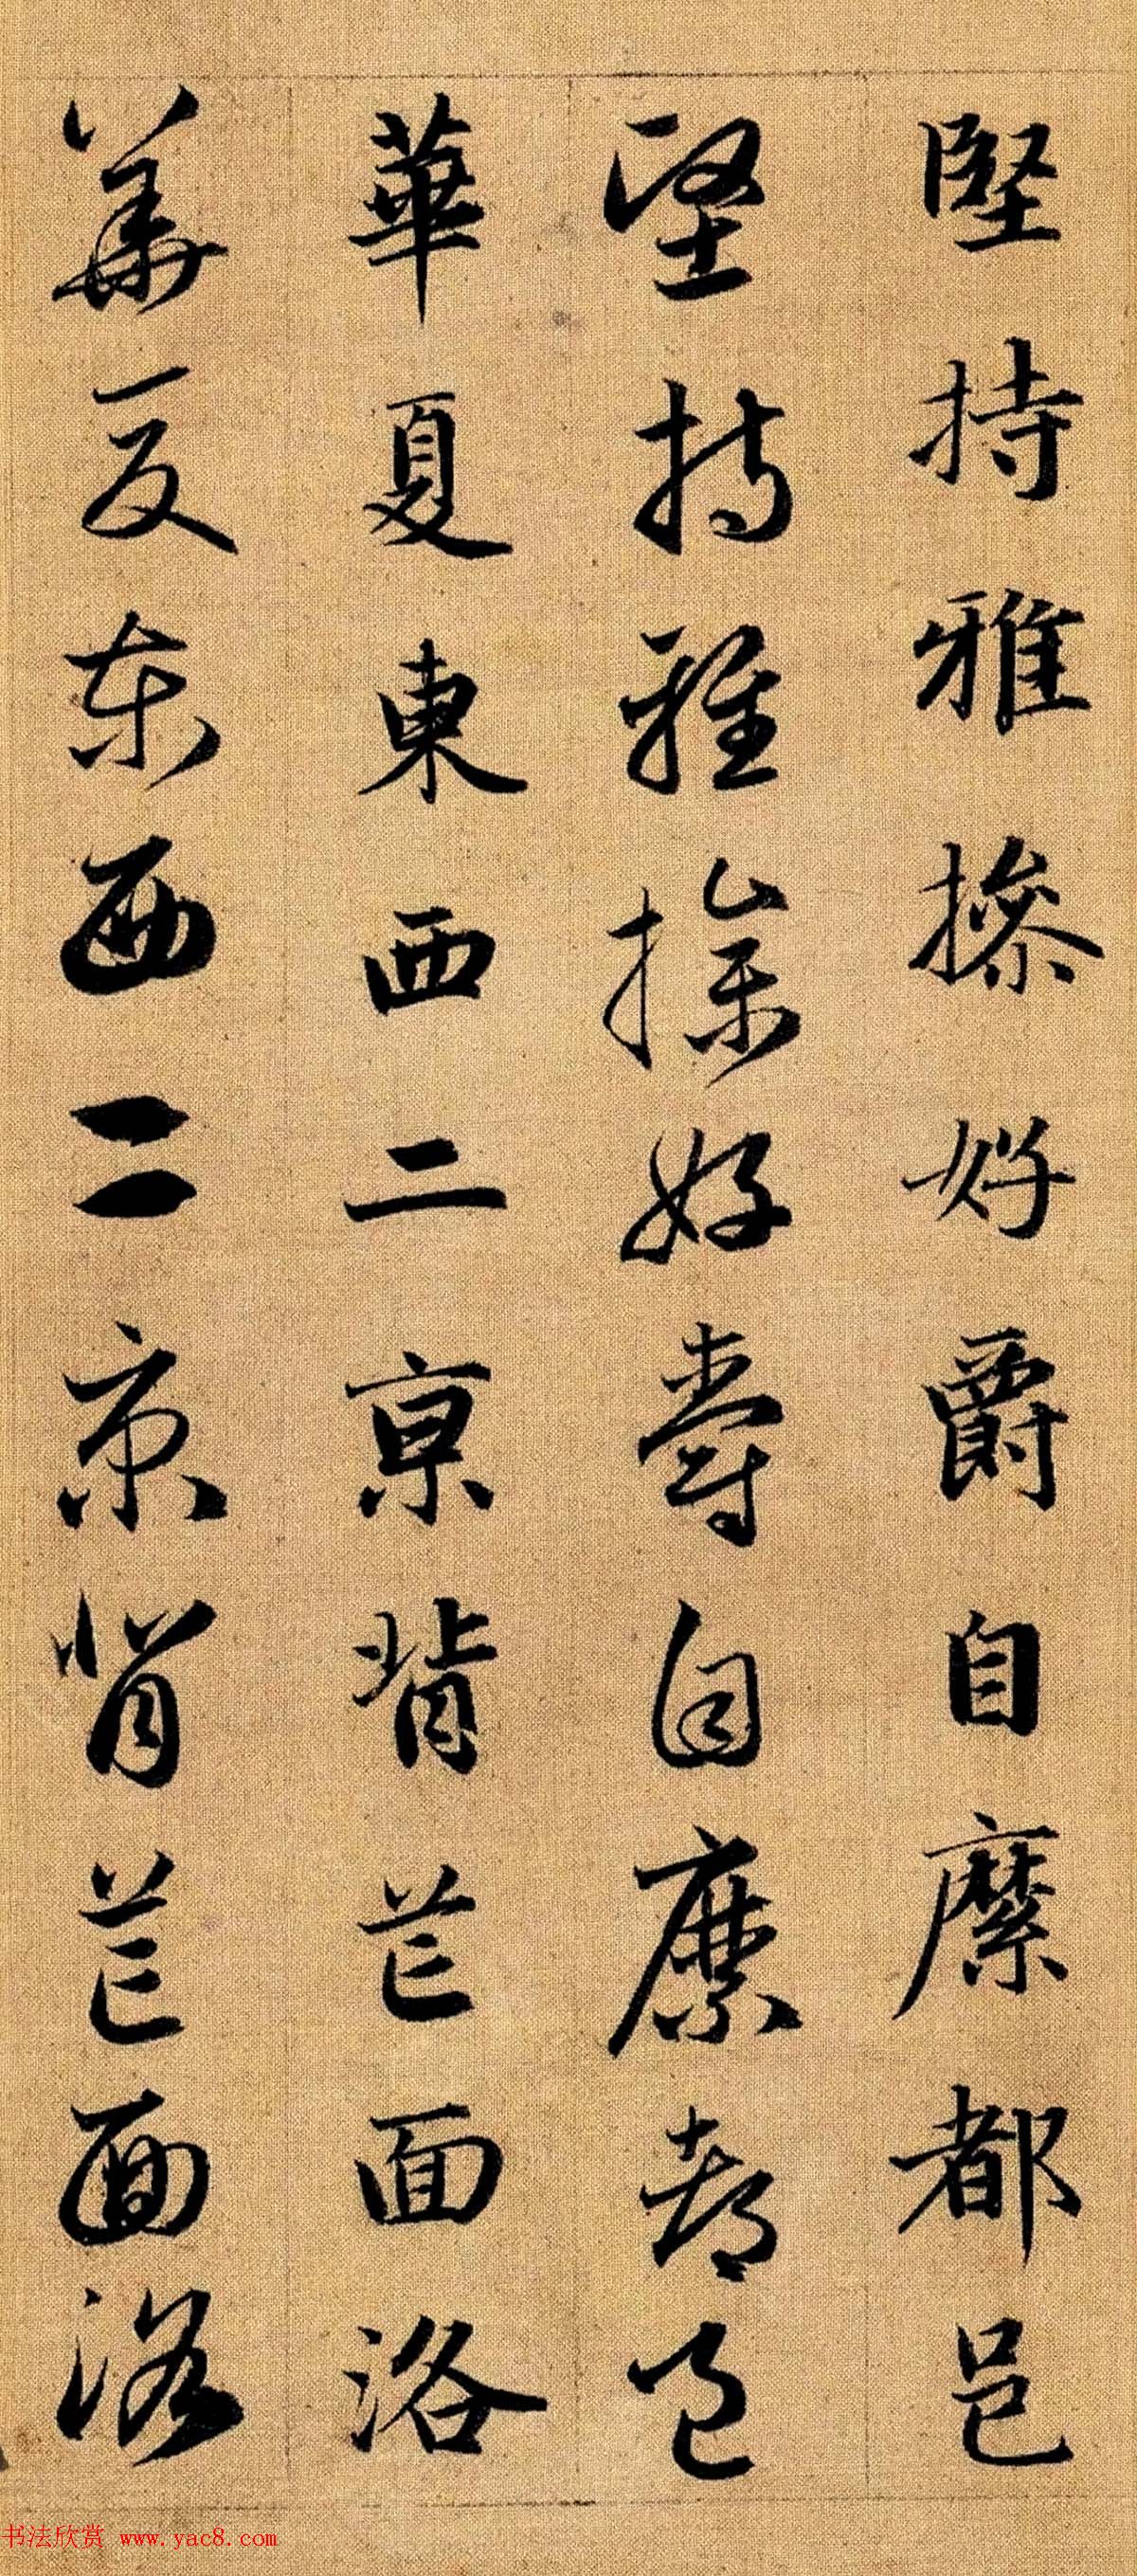 堅持雅操好爵自縻都邑
堅持雅操好爵自縻都邑
華夏東西二京背芒面洛
華夏東西二京背芒面洛
书法欣赏 www.yac8.com